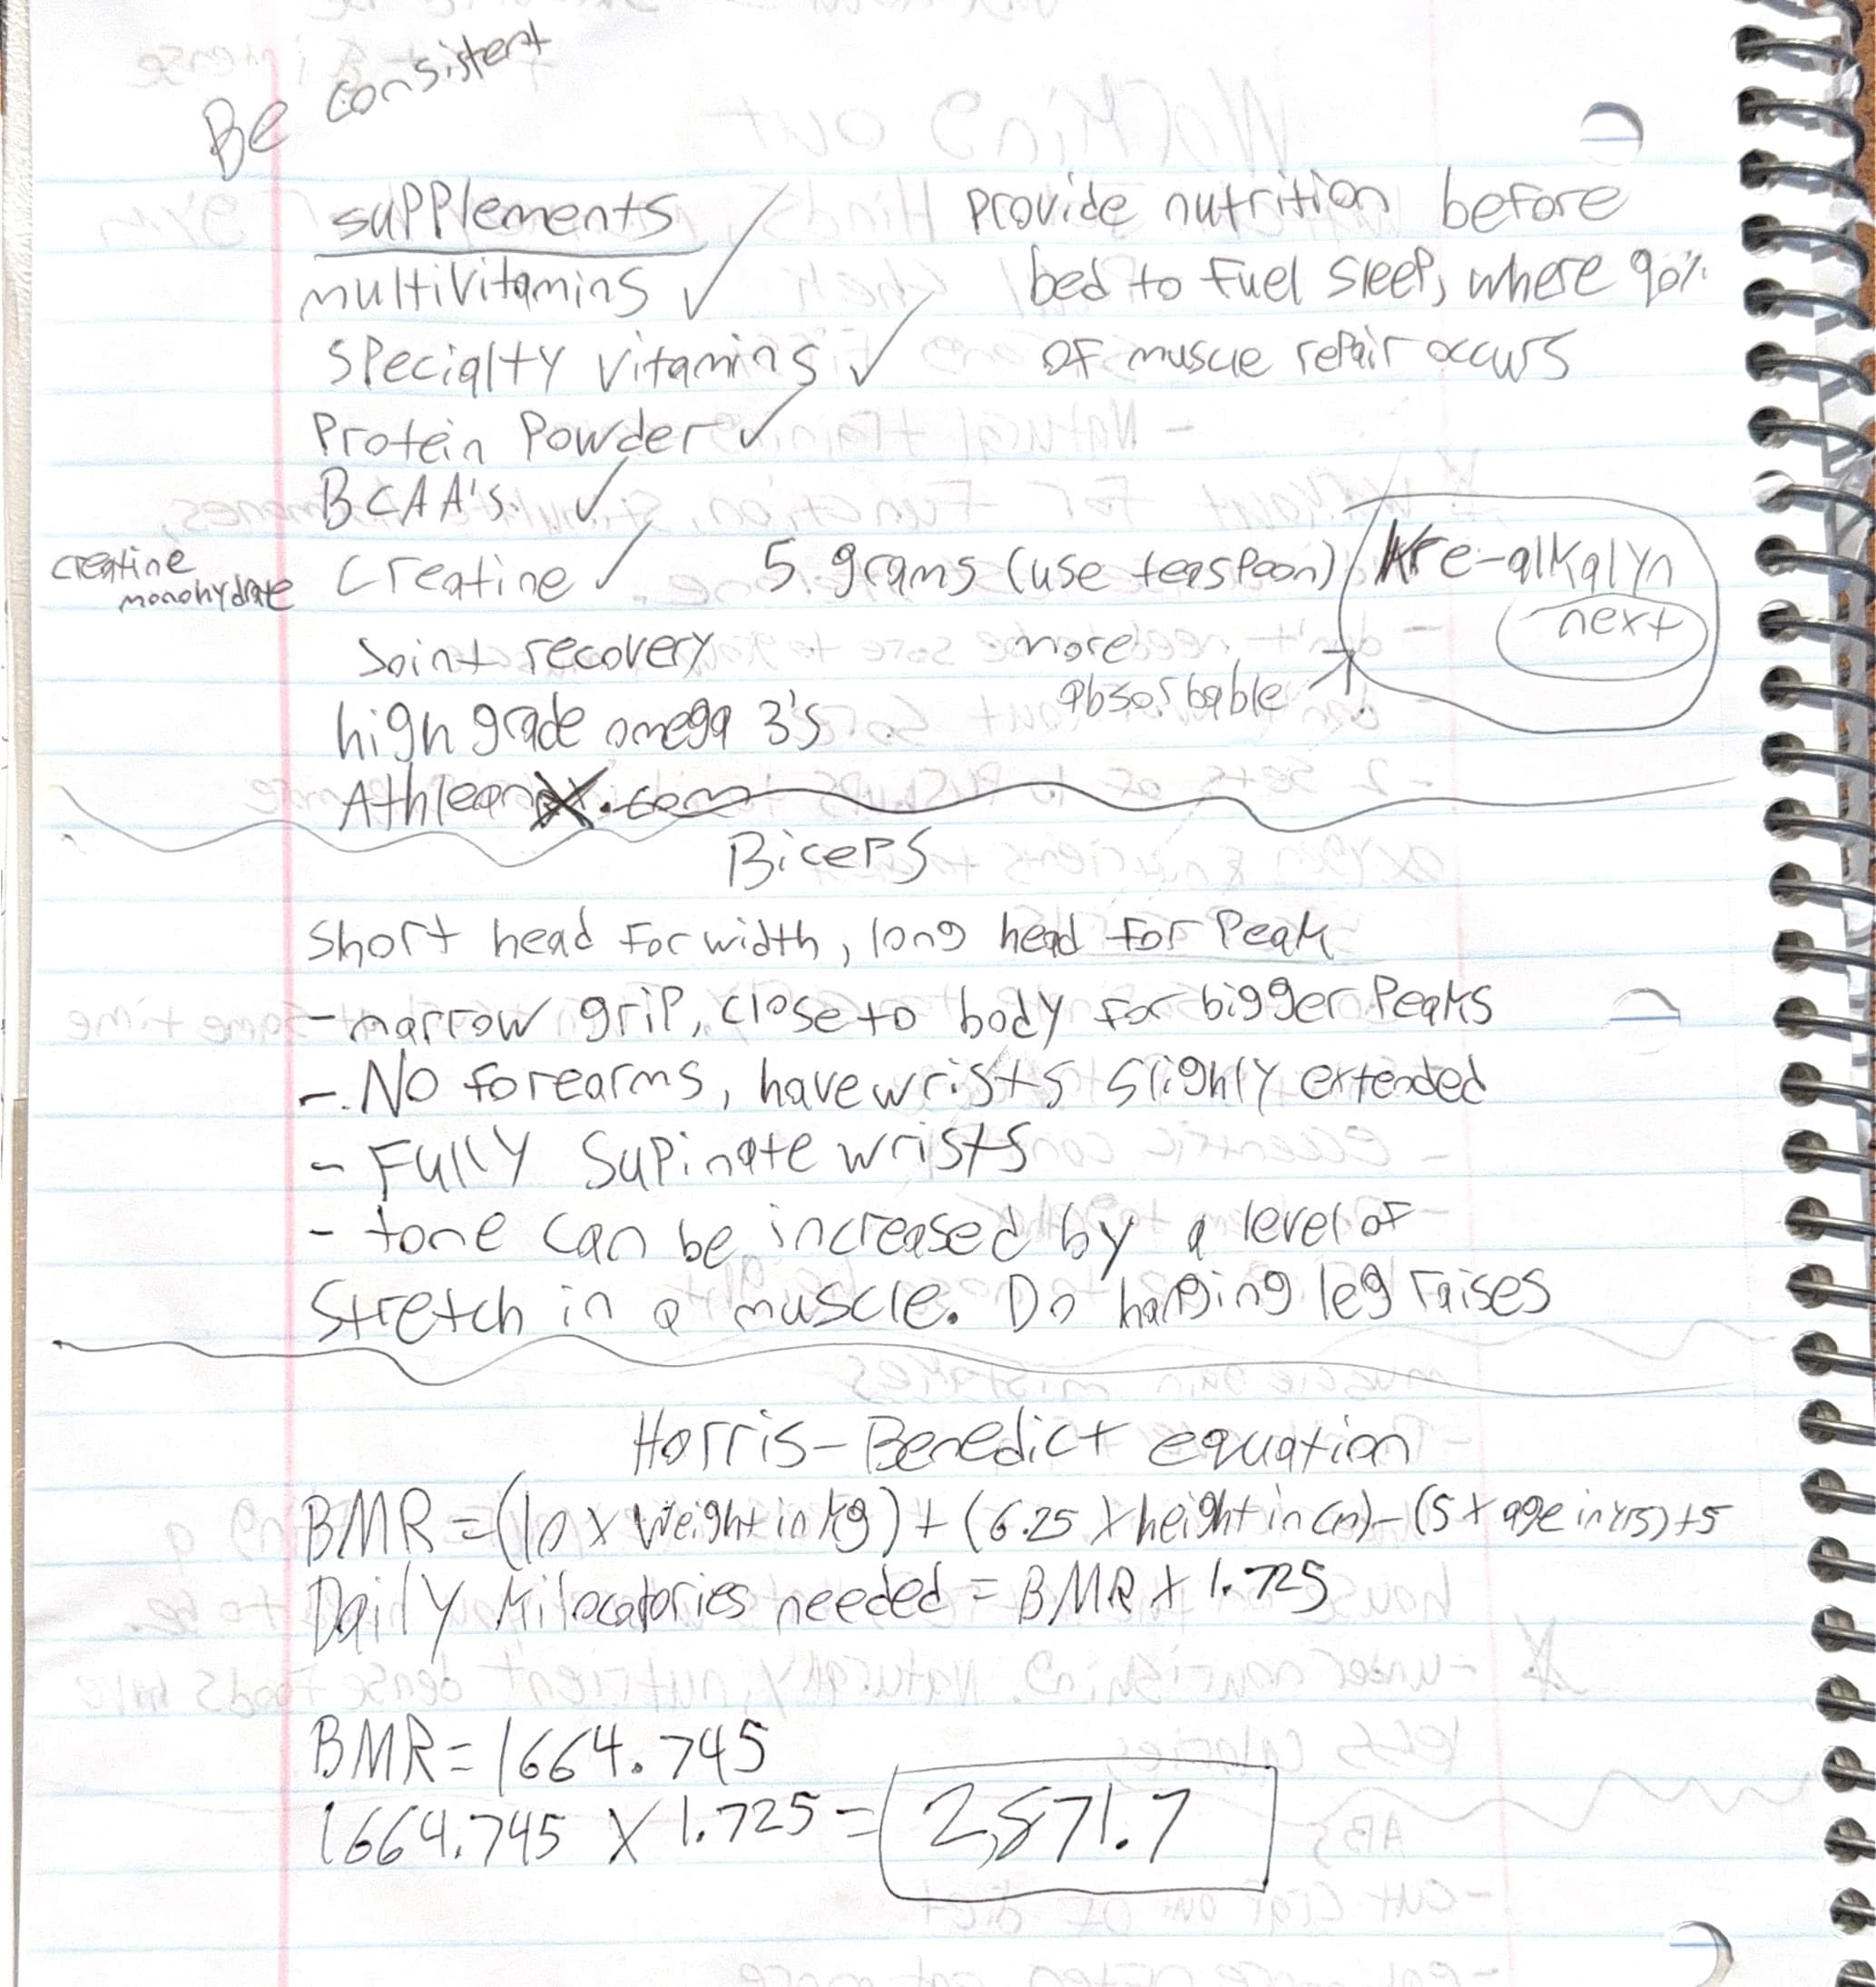 Be consistent
supplements
multivitamins ✓
specialty vitamins ✓
Protein Powder ✓
BCAA's ✓
creatine monohydrate
creatine ✓ 5 grams (use teaspoon) Kre-alkalyn
next
more absorbable
Joint recovery
high grade omega 3's
AthleanX.com
provide nutrition before
bed to fuel sleep, where 90%
of muscle repair occurs
Biceps
short head for width, long head for Peak
- narrow grip, close to body for bigger Peaks
- No forearms, have wrists slighly extended
- Fully supinate wrists
- tone can be increased by a level of
stretch in a muscle. Do hanging leg raises
Harris-Benedict equation
BMR = (10 x weight in kg) + (6.25 x height in cm) - (5 x age in yrs) + 5
Daily kilocalories needed = BMR x 1.725
BMR = 1664.745
1664.745 x 1.725 = 2,871.7